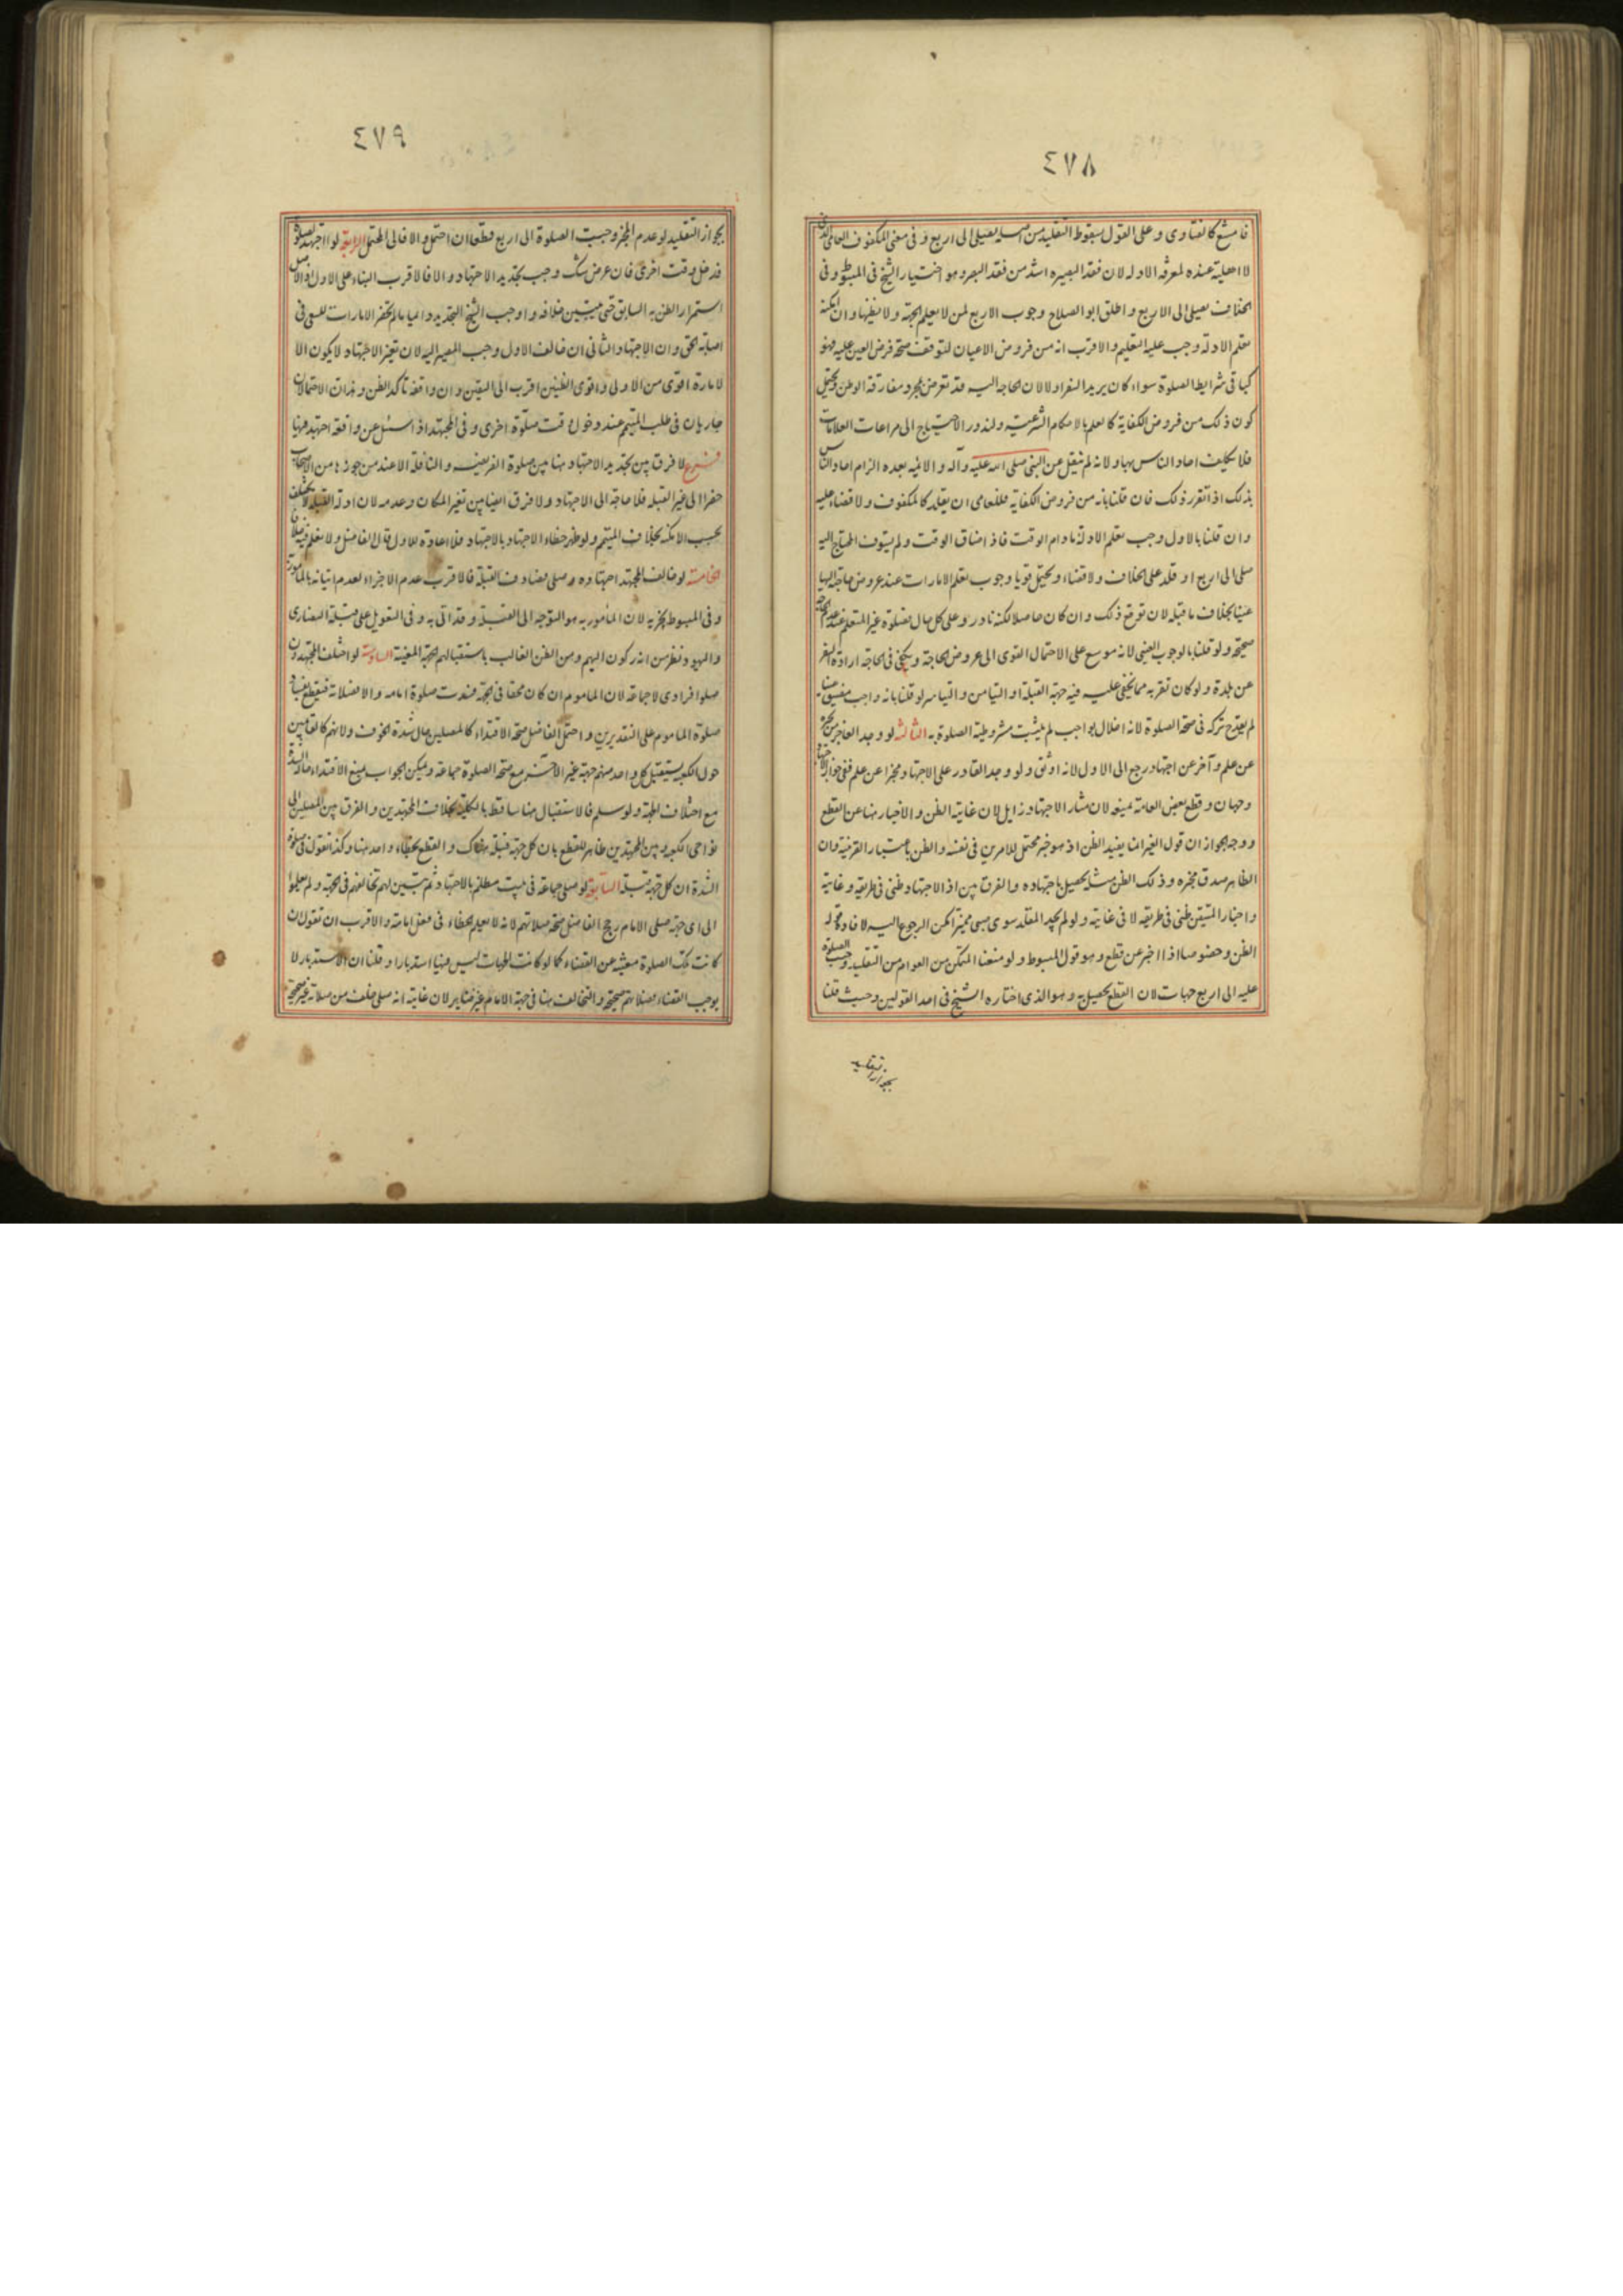 ٤٧٨
فامتنع كالفتاوى وعلى القول بسقوط التقليد من اصله يصلى الى اربع وفى معنى المكفوف العامى الذى
لا اهلية عنده لمعرفة الادلة لان فقد البصيرة اشد من فقد البصر وهو اختيار الشيخ فى المبسوط وفى
الخلاف يصلى الى الاربع واطلق ابو الصلاح وجوب الاربع لمن لا يعلم الجهة ولا يظنها وان امكنه
تعلم الادلة وجب عليه التعليم والاقرب انه من فروض الاعيان لتوقف صحة فرض العين عليه فهو
كباقى شرايط الصلوة سواء كان يريد السفر اولا لان الحاجة اليه قد تعرض بمجرد مفارقة الوطن ويحتمل
كون ذلك من فروض الكفاية كالعلم بالاحكام الشرعية ولندور الاحتياج الى مراعات العلامات
فلا يكلف احاد الناس بها ولانه لم ينقل عن النبى صلى الله عليه وآله والائمة بعده الزام احاد الناس
بذلك اذا تقرر ذلك فان قلنا بانه من فروض الكفاية فللعامى ان يقلد كالمكفوف ولا قضاء عليه
وان قلنا بالاول وجب تعلم الادلة ما دام الوقت فاذا ضاق الوقت ولم يستوف المحتاج اليه
صلى الى اربع او قلد على الخلاف ولا قضاء ويحتمل قويا وجوب تعلم الامارات عند عروض حاجة اليها
عينا بخلاف ما قبله لان توقع ذلك وان كان حاصلا لكنه نادر وعلى كل حال فصلوة غير المتعلم عند عدم الحاجة
صحيحة ولو قلنا بالوجوب العينى لانه موسع على الاحتمال القوى الى عروض الحاجة ويكفى فى الحاجة ارادة السفر
عن بلدة ولو كان تغربه مما يخفى عليه فيه جهة القبلة او التيامن والتياسر لو قلنا بانه واجب مضيق هنا
لم يقدح تركه فى صحة الصلوة لانه اخلال بواجب لم يثبت مشروطية الصلوة به الثالثة لو وجد العاجز من يخبره
عن علم وآخر عن اجتهاد رجع الى الاول لانه اوثق ولو وجد القادر على الاجتهاد مخبرا عن علم ففى جواز الاجتهاد
وجهان وقطع بعض العامة بمنعه لان مثار الاجتهاد زايل لان غاية الظن والاخبار هنا عن القطع
ووجه الجواز ان قول الغير انما يفيد الظن اذ هو خبر محتمل للامرين فى نفسه والظن باعتبار القرينة وان
الظاهر صدق مخبره وذلك الظن مثله يحصل باجتهاده والفرق بين اذ الاجتهاد ظنى فى طريقه وغايته
واخبار المتيقن ظنى فى طريقه لا فى غايته ولو لم يجد المقلد سوى صبى مميز امكن الرجوع اليه لافادة قوله
الظن وخصوصا اذا اخبر عن قطع وهو قول المبسوط ولو منعنا المتمكن من العوام من التقليد وجب الصلوة
عليه الى اربع جهات لان القطع يحصل به وهو الذى اختاره الشيخ فى احد القولين وحيث قلنا
بجواز التقليد
٤٧٩
بجواز التقليد لو عدم المخبر وجبت الصلوة الى اربع قطعا ان احتمل والا فالى المحتمل الرابعة لو اجتهد لصلوة
فدخل وقت اخرى فان عرض شك وجب تجديد الاجتهاد والا فالاقرب البناء على الاول اذ الاصل
استمرار الظن به السابق حتى يتبين خلافه واوجب الشيخ التجديد دائما ما لم يحضر الامارات للسعى فى
اصابة الحق وان الاجتهاد الثانى ان خالف الاول وجب المصير اليه لان تغير الاجتهاد لا يكون الا
لامارة اقوى من الاولى واقوى الظنين اقرب الى اليقين وان وافقه تاكد الظن وهذان الاحتمالان
جاريان فى طلب المتيمم عند دخول وقت صلوة اخرى وفى المجتهد اذا سئل عن واقعة اجتهد فيها
فرع لا فرق بين تجديد الاجتهاد هنا بين صلوة الفريضة والنافلة الا عند من جوزها من الاصحاب
حضرا الى غير القبلة فلا حاجة الى الاجتهاد ولا فرق ايضا بين تغير المكان وعدمه لان ادلة القبلة لا تختلف
بحسب الامكنة بخلاف المتيمم ولو ظهر خطاء الاجتهاد بالاجتهاد فلا اعادة للاول قال الفاضل ولا نعلم فيه خلافا
الخامسة لو خالف المجتهد اجتهاده وصلى فصادف القبلة فالاقرب عدم الاجزاء لعدم اتيانه بالمامور به
وفى المبسوط يجزيه لان المامور به هو التوجه الى القبلة وقد اتى به وفى التعويل على قبلة النصارى
واليهود نظر من انه ركون اليهم ومن الظن الغالب باستقبالهم الجهة المعينة السادسة لو اختلف المجتهدون
صلوا فرادى لا جماعة لان الماموم ان كان محقا فى الجهة فسدت صلوة امامه والا فصلاته فيقطع بفساد
صلوة الماموم على التقديرين واحتمل الفاضل صحة الاقتداء كالمصلين حال شدة الخوف ولانهم كالقائمين
حول الكعبة يستقبل كل واحد منهم جهة غير الآخر مع صحة الصلوة جماعة ويمكن الجواب بمنع الاقتداء حالة الشدة
مع اختلاف الجهة ولو سلم فالاستقبال هنا ساقط بالكلية بخلاف المجتهدين والفرق بين المصلين الى
نواحى الكعبة وبين المجتهدين ظاهر للقطع بان كل جهة قبلة هناك والقطع بخطاء واحد هنا وكذا نقول فى صلوة
الشدة ان كل جهة قبلة السابعة لو صلى جماعة فى بيت مظلم بالاجتهاد ثم تبين لهم تخالفهم فى الجهة ولم يعلموا
الى اى جهة صلى الامام رجح الفاضل صحة صلاتهم لانه لا يعلم الخطاء فى فعل امامه والاقرب ان نقول ان
كانت تلك الصلوة مغنية عن القضاء كما لو كانت الجهات ليس فيها استدبارا او قلنا ان الاستدبار لا
يوجب القضاء فصلاتهم صحيحة والتخالف هنا فى جهة الامام غير ضائر لان غايته انه صلى خلف من صلاته غير صحيحة